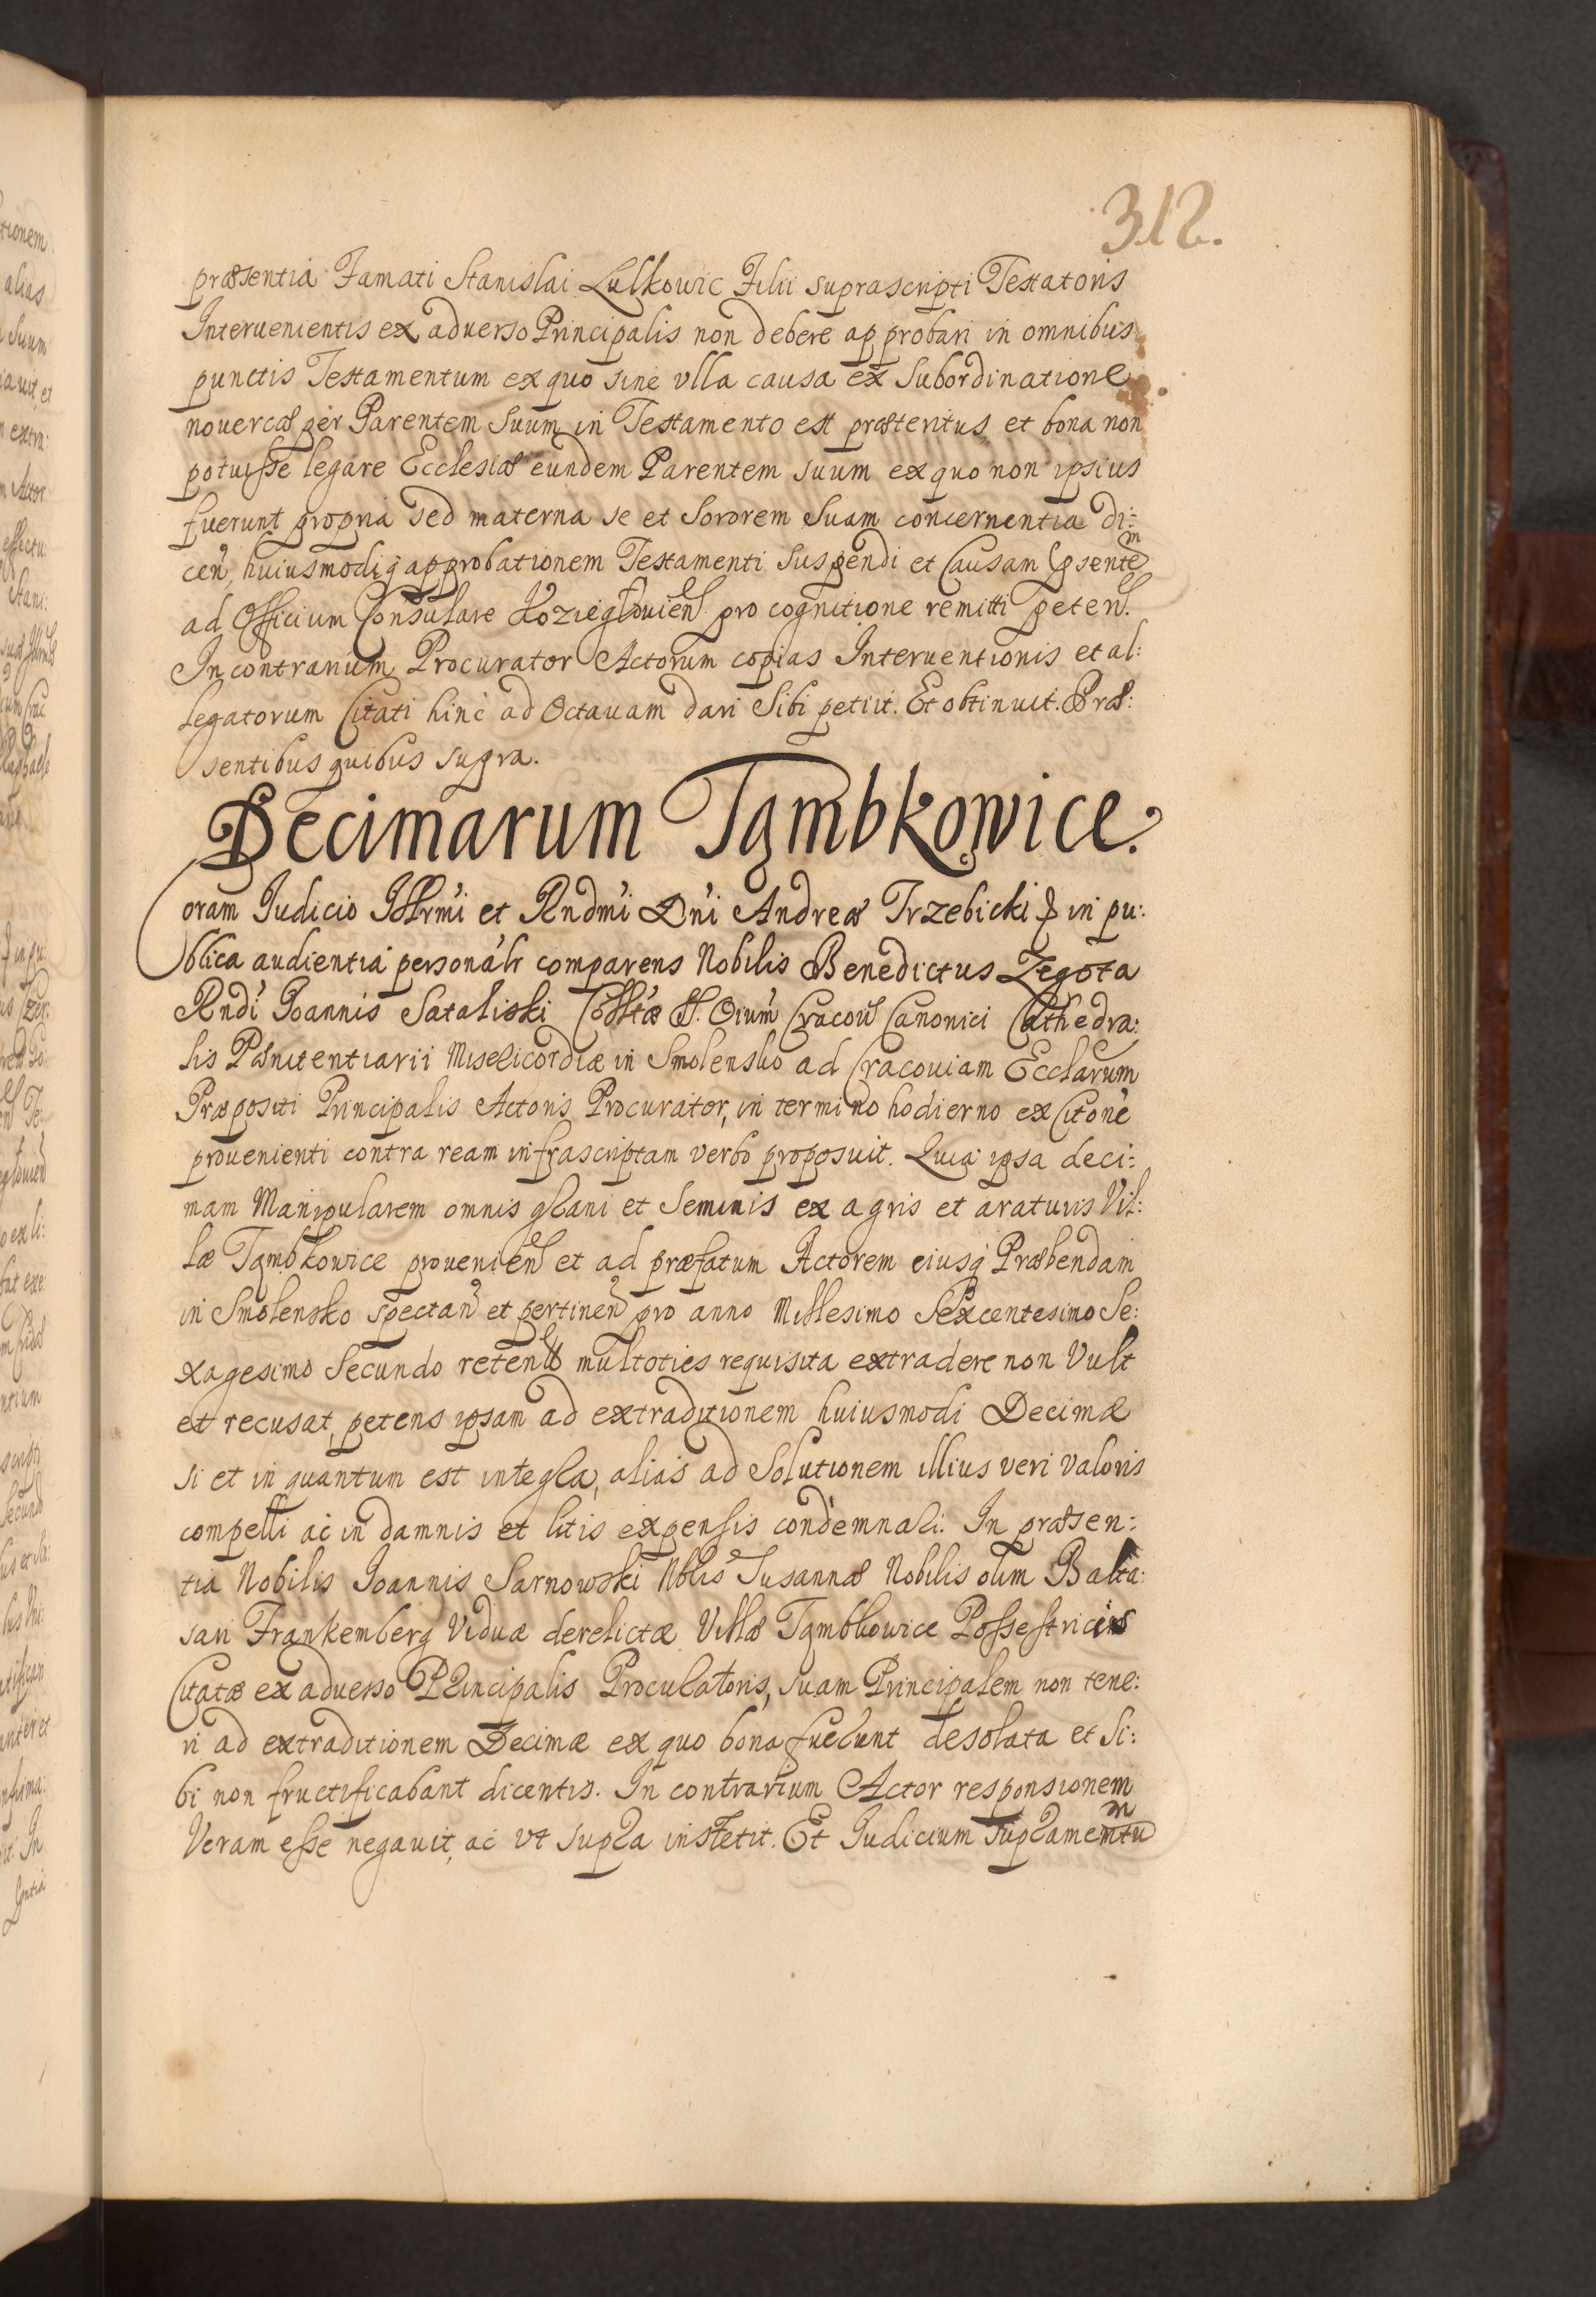 312.
præsentia Famati Stanislai Lulkowic Filii suprascripti Testatoris
Interuenientis ex aduerso Principalis non debere approbari in omnibus
punctis Testamentum ex quo sine vlla causa ex Subordinatione
nouercæ per Parentem Suum in Testamento est præteritus et bona non
potuisse legare Ecclesiæ eundem Parentem suum ex quo non ipsius
fuerunt propria sed materna se et Sororem Suam concernentia di:
ceñ, huiusmodiq approbationem Testamenti Suspendi et Causam psentem
ad Officium Consulare Kozieglouien pro cognitione remitti peten.
In contrarium Procurator Actorum copias Interuentionis et al:
legatorum Citati hinc ad Octauam dari Sibi petiit. Et obtinuit. Præ:
sentibus quibus supra.
Decimarum Tąmbkowice.
Coram Judicio Illrmi et Rndmi Dni Andreæ Trzebicki in pu:
blica audientia personalr comparens Nobilis Benedictus Zegota
Rndi Joannis Sataliski Colltæ SS. Oium Cracoun Canonici Cathedra:
lis Pœnitentiarii Misericordiæ in Smolensko ad Cracouiam Ecclarum
Præpositi Principalis Actoris Procurator, in termino hodierno ex Citone
prouenienti contra ream infrascriptam verbo proposuit. Quia ipsa deci:
mam Manipularem omnis grani et Seminis ex agris et araturis Vil:
læ Tąmbkowice prouenien et ad præfatum Actorem eiusq Præbendam
in Smolensko spectan et pertinen pro anno Millesimo Sexcentesimo Se:
xagesimo Secundo multoties requisita extradere non Vult
et recusat, petens ipsam ad extraditionem huiusmodi Decimæ
si et in quantum est integra, alias ad Solutionem illius veri valoris
compelli ac in damnis et litis expensis condemnari. In præsen:
tia Nobilis Joannis Sarnowski Nblis Susannæ Nobilis olim Balta:
sari Frankemberg Viduæ derelictæ Villæ Tąmbkowice Possestricis
Citatæ ex aduerso Principalis Procuratoris, suam Principalem non tene:
ri ad extraditionem Decimæ ex quo bona fuerunt desolata et Si:
bi non fructificabant dicentis. In contrarium Actor responsionem
Veram esse negauit, ac vt supra institit. Et Judicium supramentum